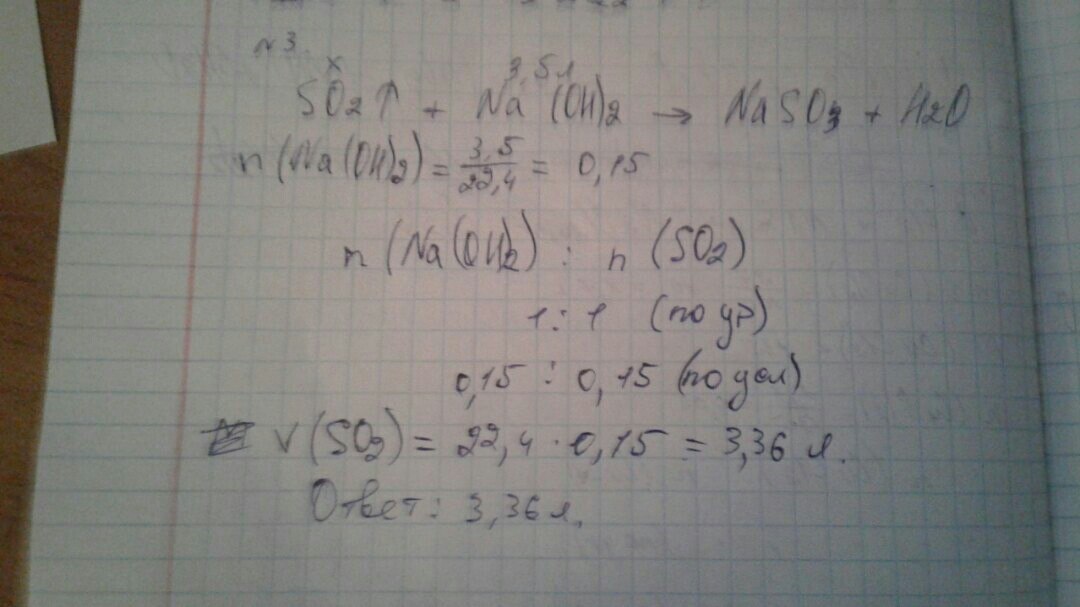 №3.
x 3,5л
SO2↑ + Na(OH)2 → NaSO3 + H2O
n(Na(OH)2) = 3,5/22,4 = 0,15
n(Na(OH)2) : n(SO2)
1 : 1 (по ур)
0,15 : 0,15 (по усл)
V(SO2) = 22,4 · 0,15 = 3,36 л.
Ответ: 3,36 л.